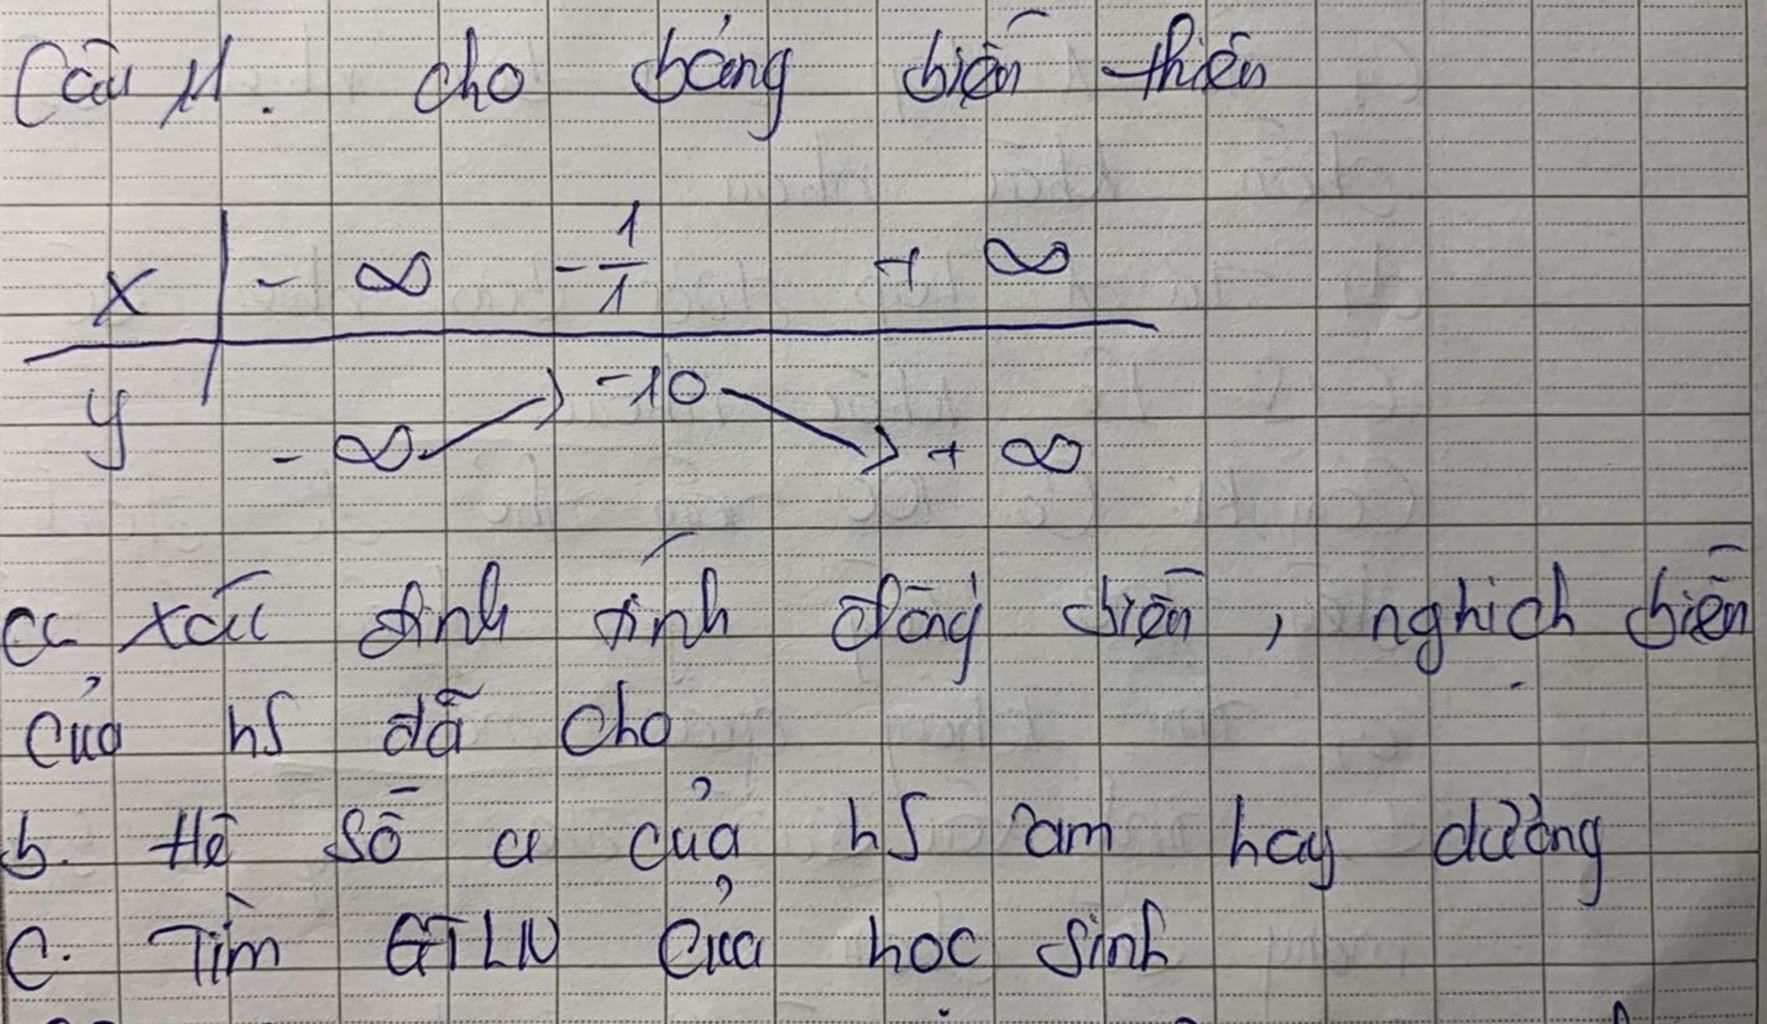 Câu 11. cho bảng biến thiên
x | - ∞ -1/1 + ∞
y | - ∞ -10 + ∞
a xác định tính đồng biến, nghịch biến
của hS đã cho
b. Hệ số a của hS âm hay dương
C. Tìm GTLN của hoc sinh